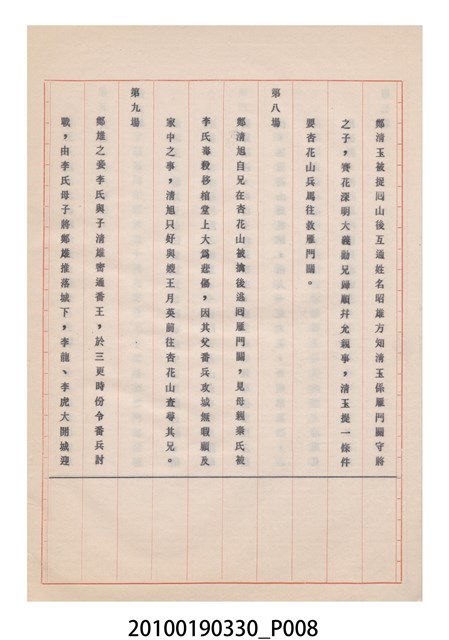 鄭清玉被捉囘山後互通姓名昭雄方知清玉係雁門關守將
之子，賽花深明大義勸兄歸順幷允親事，清玉提一條件
要杏花山兵馬往救雁門關。
第八場
鄭清旭自兄在杏花山被擒後逃囘雁門關，見母親秦氏被
李氏毒殺移棺堂上大爲悲傷，因其父番兵攻城無暇顧及
家中之事，清旭只好與嫂王月英前往杏花山查尋其兄。
第九場
鄭雄之妾李氏與子清雄密通番王，於三更時份令番兵討
戰，由李氏母子將鄭雄推落城下，李龍、李虎大開城迎
20100190330_P008